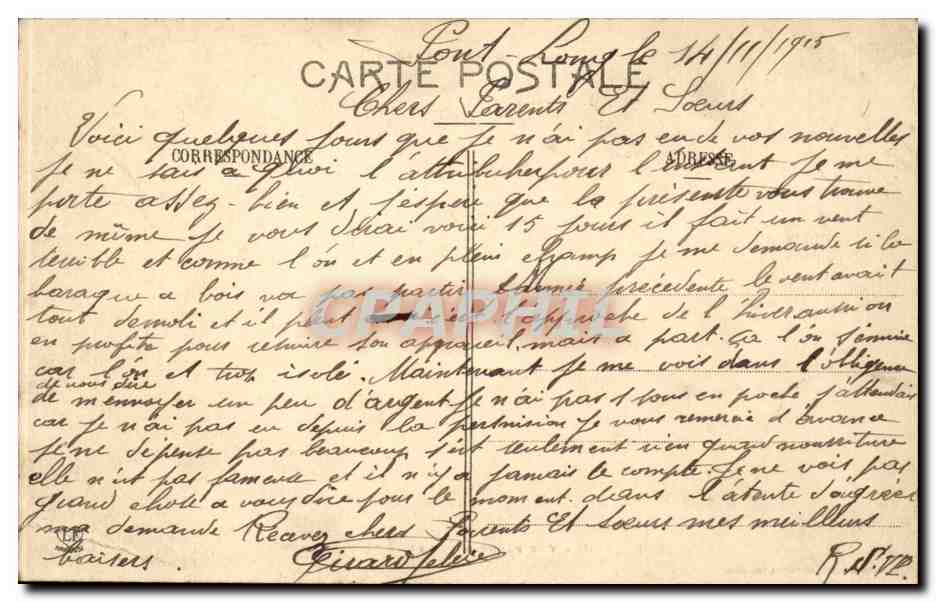 Pont-Long le 14/11/1915
CARTE POSTALE
Chers Parents Et Soeurs
Voici quelques jours que je n'ai pas eu de vos nouvelles
CORRESPONDANCE
ADRESSE
je ne sais a quoi l'attribuer pour l'instant je me
porte assez-bien et j'espere que la présente vous trouve
de même je vous dirai voici 15 jours il fait un vent
terrible et comme l'on et en plein champ je me demande si la
baraque a bois va pas partir l'année précédente le vent avait
tout demoli et il peut l'approche de l'hiver
en profite pour refaire son appareil, mais a part ça l'on s'ennuie
car l'on et trop isolé. Maintenant je me vois dans l'obligence
de vous dire
de m'envoyer un peu d'argent je n'ai pas 1 sous en poche j'attendais
car je n'ai pas eu depuis la permission je vous remercie d'avance
je ne dépense pas beaucoup seulement rien quand nourriture
elle n'est pas fameuse et il n'y a jamais le compte. Je ne vois pas
grand chose a vous dire pour le moment. dans l'attente d'agréer
ma demande Recevez chers Parents Et soeurs mes meilleurs
LE
baisers.
Girard
R.S.V.P.
CPAPHIL.COM